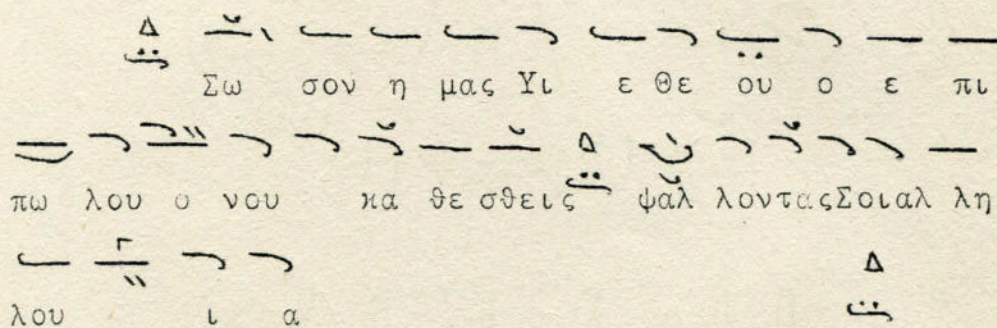 Δ
Σω σον η μας Υι ε Θε ου ο ε πι
πω λου ο νου κα θε σθεις Δ ψαλ λοντας Σοι αλ λη
λου ι α Δ